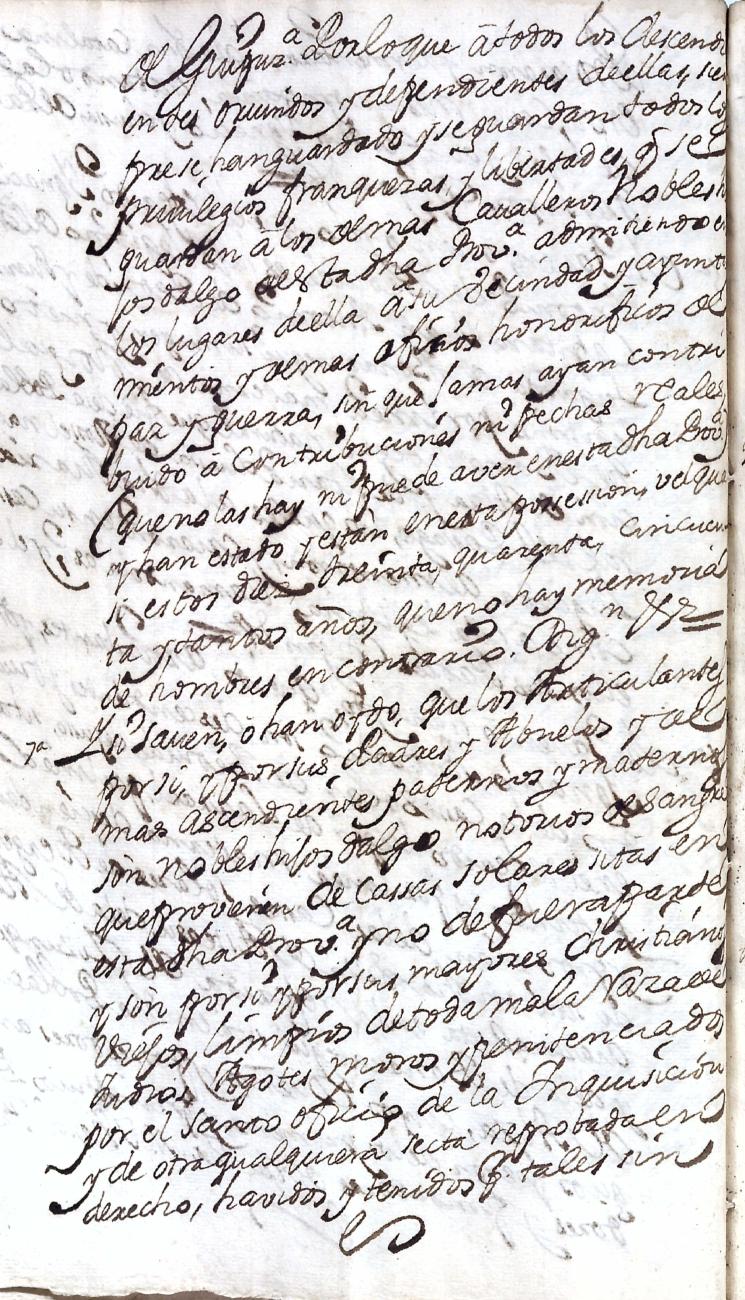 de Guipuz.ª Por lo que à todos los descendi
entes oriundos y dependientes de ellas, siem
pre se han guardado y se guardan todos los
privilegios franquezas, y libertades, q̃ se
guardan à los demas Cavalleros Nobles hi
jos dalgo de esta dha Prov.ª admitiendo en
los lugares de ella à su vecindad y ayunta
mientos y demas oficios honorificos de
paz y guerra, sin que Jamas ayan contri
buido à contribuciones ni pechas reales,
(que no las hay ni puede aver en esta dha Prov.ª
y han estado y estàn en esta possession, vel qua
si estos diez treinta, quarenta, cincuen
ta y tantos años, que no hay memoria
de hombres en contrario. Dig.n &ª =
7ª Yt si saven, ò han oydo, que los Articulantes
por si, y por sus Padres y Abuelos y de
mas ascendientes paternos y maternos
són nobles hijos dalgo notorios de sangre
que provienen de Cassas solares sitas en
esta dha Prov.ª y no de fuera parte
y són por si y por sus mayores Christianos
viejos, limpios de toda mala Raza de
Judios Agotes moros y penitenciados
por el Santo oficio de la Inquisición
y de otra qualquiera secta reprobada en
derecho, havidos y tenidos p.r tales sin